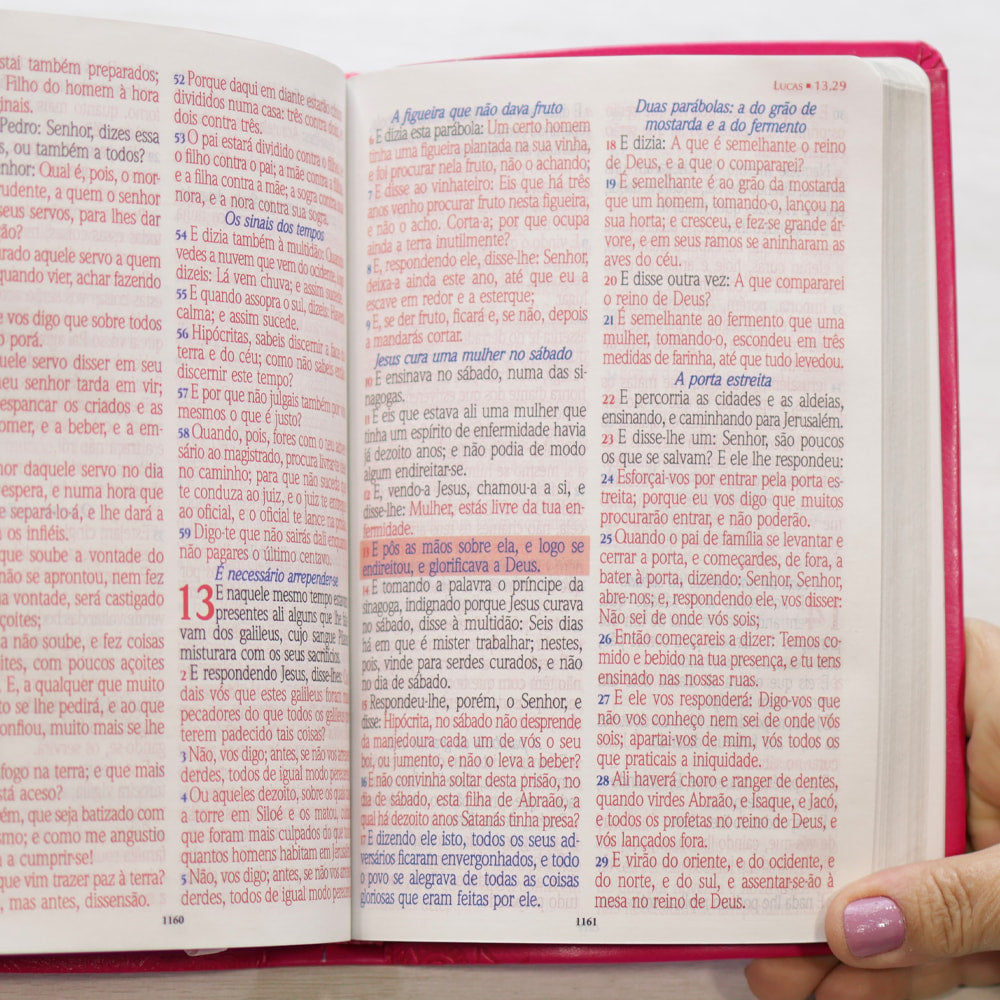 stai também preparados;
Filho do homem à hora
inais.
Pedro: Senhor, dizes essa
s, ou também a todos?
nhor: Qual é, pois, o mor-
rudente, a quem o senhor
seus servos, para lhes dar
ção?
urado aquele servo a quem
quando vier, achar fazendo
e vos digo que sobre todos
porá.
uele servo disser em seu
eu senhor tarda em vir;
espancar os criados e as
omer, e a beber, e a em-
hor daquele servo no dia
espera, e numa hora que
e separá-lo-á, e lhe dará a
os infiéis.
que soube a vontade do
não se aprontou, nem fez
a vontade, será castigado
çoites;
a não soube, e fez coisas
ites, com poucos açoites
. E, a qualquer que muito
to se lhe pedirá, e ao que
onfiou, muito mais se lhe
fogo na terra; e que mais
stá aceso?
ém, que seja batizado com
smo; e como me angustio
a cumprir-se!
que vim trazer paz à terra?
, mas antes, dissensão.
52 Porque daqui em diante estarão
divididos numa casa: três contra
dois contra três.
53 O pai estará dividido contra o filho
o filho contra o pai; a mãe contra a
e a filha contra a mãe; a sogra contra
nora, e a nora contra sua sogra.
Os sinais dos tempos
54 E dizia também à multidão: Quando
vedes a nuvem que vem do ocidente,
dizeis: Lá vem chuva; e assim sucede.
55 E quando assopra o sul, dizeis:
calma; e assim sucede.
56 Hipócritas, sabeis discernir a face da
terra e do céu; como não sabeis
discernir este tempo?
57 E por que não julgais também por
mesmos o que é justo?
58 Quando, pois, fores com o teu
sário ao magistrado, procura livrar-te
no caminho; para que não suceda que
te conduza ao juiz, e o juiz te entregue
ao oficial, e o oficial te lance na
59 Digo-te que não sairás dali
não pagares o último centavo.
É necessário arrepender-se
13 E naquele mesmo tempo
presentes ali alguns que lhe
vam dos galileus, cujo sangue
misturara com os seus sacrifícios.
2 E respondendo Jesus, disse-lhes:
dais vós que estes galileus foram
pecadores do que todos os galileus
terem padecido tais coisas?
3 Não, vos digo; antes, se não vos
derdes, todos de igual modo
4 Ou aqueles dezoito, sobre os quais
a torre em Siloé e os matou,
que foram mais culpados do que
quantos homens habitam em
5 Não, vos digo; antes, se não vos
derdes, todos de igual modo
1160
Lucas ▪ 13.29
A figueira que não dava fruto
6 E dizia esta parábola: Um certo homem
tinha uma figueira plantada na sua vinha,
e foi procurar nela fruto, não o achando;
7 E disse ao vinhateiro: Eis que há três
anos venho procurar fruto nesta figueira,
e não o acho. Corta-a; por que ocupa
ainda a terra inutilmente?
8 E, respondendo ele, disse-lhe: Senhor,
deixa-a ainda este ano, até que eu a
escave em redor e a esterque;
9 E, se der fruto, ficará e, se não, depois
a mandarás cortar.
Jesus cura uma mulher no sábado
10 E ensinava no sábado, numa das si-
nagogas.
11 E eis que estava ali uma mulher que
tinha um espírito de enfermidade havia
já dezoito anos; e não podia de modo
algum endireitar-se.
12 E, vendo-a Jesus, chamou-a a si, e
disse-lhe: Mulher, estás livre da tua en-
fermidade.
13 E pôs as mãos sobre ela, e logo se
endireitou, e glorificava a Deus.
14 E tomando a palavra o príncipe da
sinagoga, indignado porque Jesus curava
no sábado, disse à multidão: Seis dias
há em que é mister trabalhar; nestes,
pois, vinde para serdes curados, e não
no dia de sábado.
15 Respondeu-lhe, porém, o Senhor, e
disse: Hipócrita, no sábado não desprende
da manjedoura cada um de vós o seu
boi, ou jumento, e não o leva a beber?
16 E não convinha soltar desta prisão, no
dia de sábado, esta filha de Abraão, a
qual há dezoito anos Satanás tinha presa?
17 E dizendo ele isto, todos os seus ad-
versários ficaram envergonhados, e todo
o povo se alegrava de todas as coisas
gloriosas que eram feitas por ele.
Duas parábolas: a do grão de
mostarda e a do fermento
18 E dizia: A que é semelhante o reino
de Deus, e a que o compararei?
19 É semelhante é ao grão da mostarda
que um homem, tomando-o, lançou na
sua horta; e cresceu, e fez-se grande ár-
vore, e em seus ramos se aninharam as
aves do céu.
20 E disse outra vez: A que compararei
o reino de Deus?
21 É semelhante ao fermento que uma
mulher, tomando-o, escondeu em três
medidas de farinha, até que tudo levedou.
A porta estreita
22 E percorria as cidades e as aldeias,
ensinando, e caminhando para Jerusalém.
23 E disse-lhe um: Senhor, são poucos
os que se salvam? E ele lhe respondeu:
24 Esforçai-vos por entrar pela porta es-
treita; porque eu vos digo que muitos
procurarão entrar, e não poderão.
25 Quando o pai de família se levantar e
cerrar a porta, e começardes, de fora, a
bater à porta, dizendo: Senhor, Senhor,
abre-nos; e, respondendo ele, vos disser:
Não sei de onde vós sois;
26 Então começareis a dizer: Temos co-
mido e bebido na tua presença, e tu tens
ensinado nas nossas ruas.
27 E ele vos responderá: Digo-vos que
não vos conheço nem sei de onde vós
sois; apartai-vos de mim, vós todos os
que praticais a iniquidade.
28 Ali haverá choro e ranger de dentes,
quando virdes Abraão, e Isaque, e Jacó,
e todos os profetas no reino de Deus, e
vós lançados fora.
29 E virão do oriente, e do ocidente, e
do norte, e do sul, e assentar-se-ão à
mesa no reino de Deus.
1161